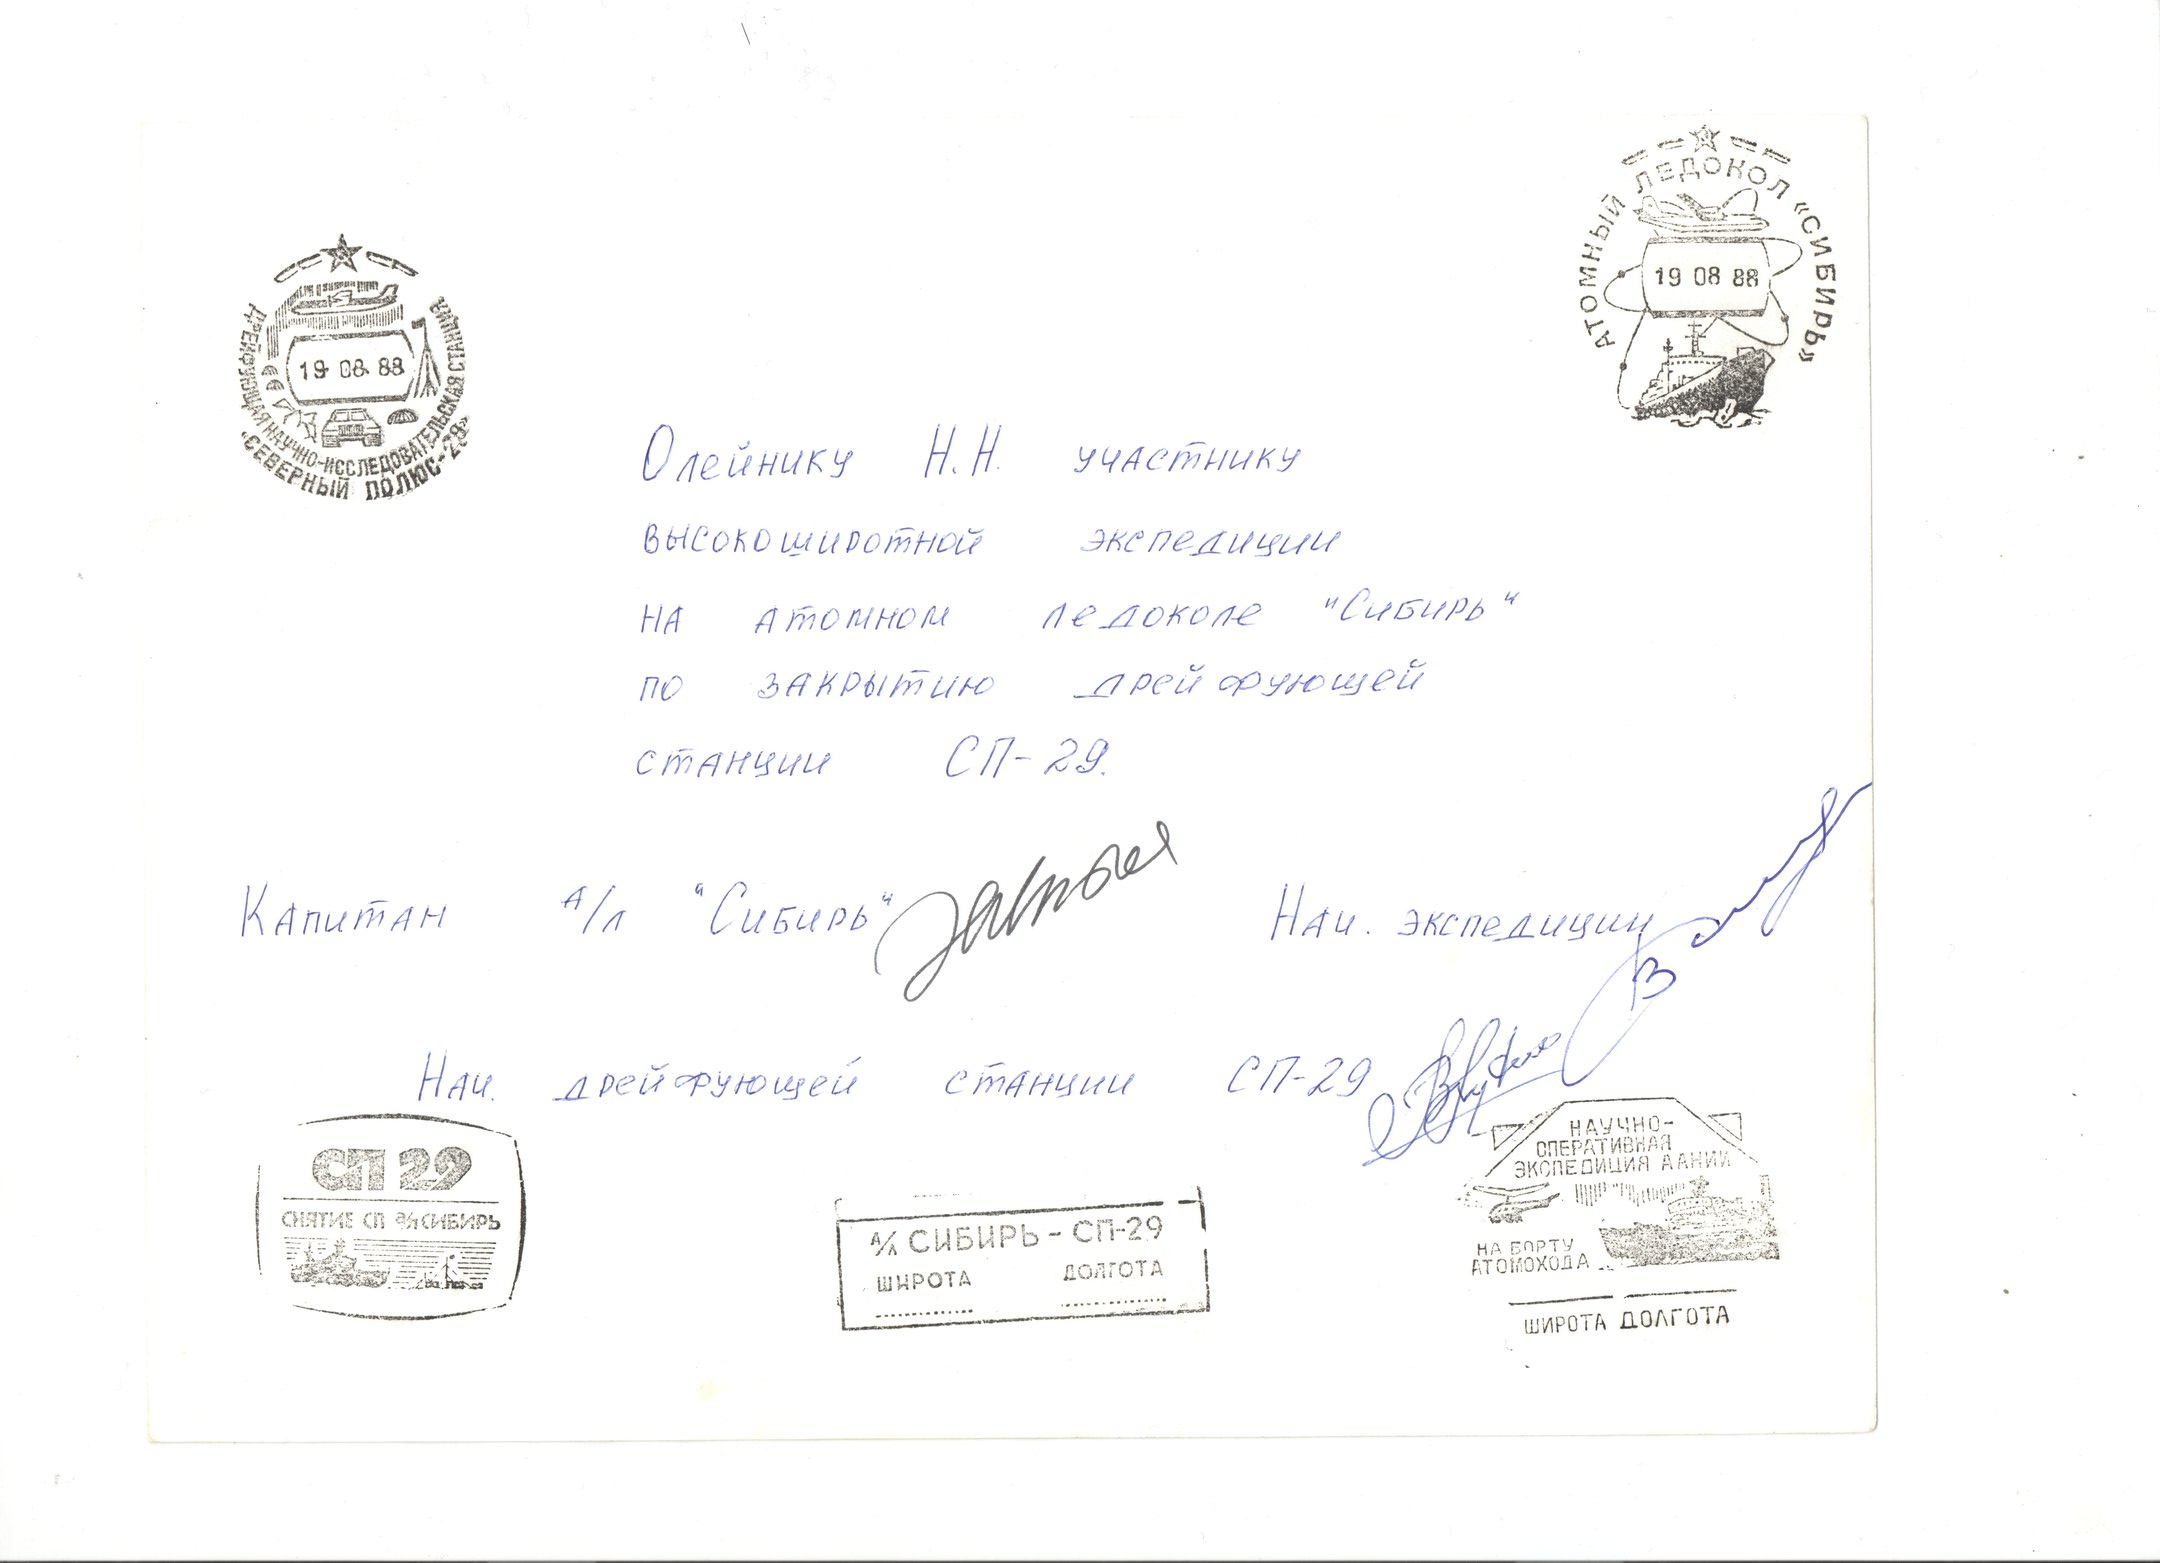 АТОМНЫЙ ЛЕДОКОЛ «СИБИРЬ»
19 08 88
ДРЕЙФУЮЩАЯ НАУЧНО-ИССЛЕДОВАТЕЛЬСКАЯ СТАНЦИЯ
«СЕВЕРНЫЙ ПОЛЮС-29»
19 08 88
Олейнику Н.Н. участнику
высокоширотной экспедиции
на атомном ледоколе "Сибирь"
по закрытию дрейфующей
станции СП-29.
Капитан а/л "Сибирь"
Нач. экспедиции
Нач. дрейфующей станции СП-29
СП 29
СНЯТИЕ СП а/л СИБИРЬ
А/Л СИБИРЬ - СП-29
ШИРОТА ДОЛГОТА
НАУЧНО-
ОПЕРАТИВНАЯ
ЭКСПЕДИЦИЯ ААНИИ
НА БОРТУ
АТОМОХОДА
ШИРОТА ДОЛГОТА